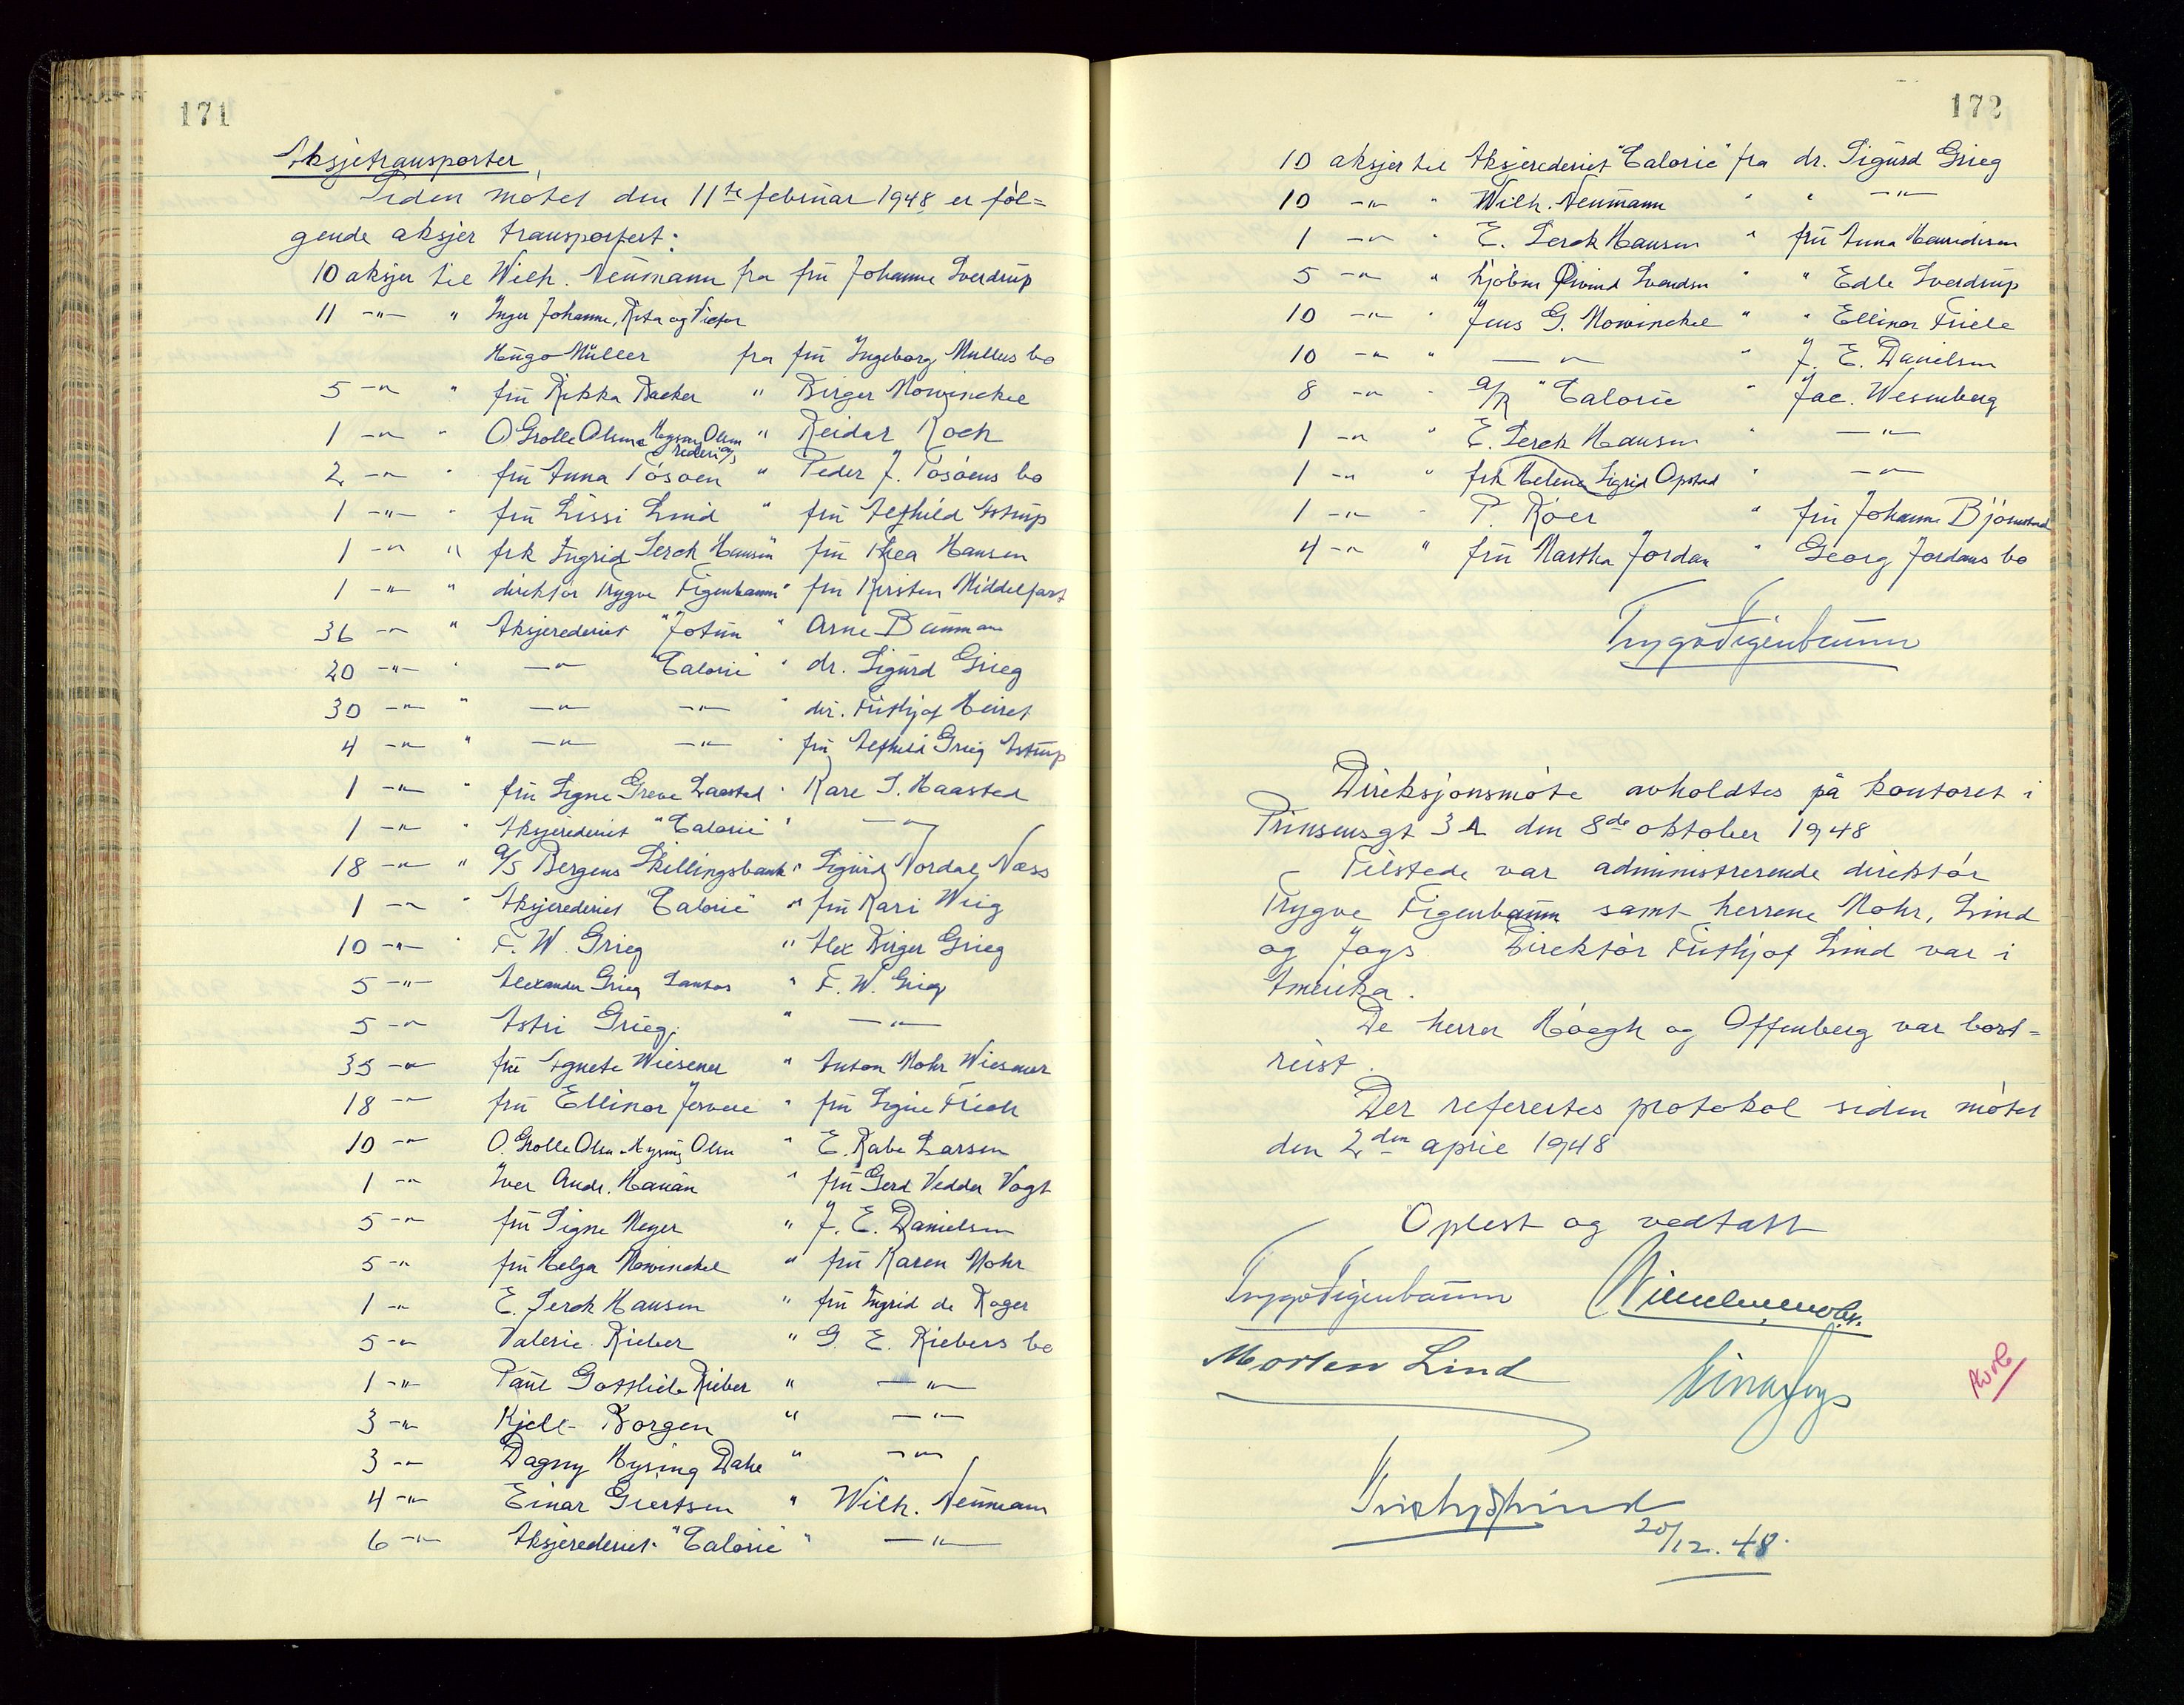 171
Aksjetransporter
Siden møtet den 11te februar 1948 er føl=
gende aksjer transportert:
10 aksjer til Wilh. Neumann fra fru Johanne Sverdrup
11 -"- " Inger Johanne, Rita og Victor
Hugo Müller fra fru Ingeborg Mullers bo
5 -"- " fru Rikka Backer " Birger Mowinckel
1 -"- " O Grolle Olsen Hysing Olsen rederi a/s " Reidar Koch
2 -"- " fru Anna Tösöen " Peder J. Tösöens bo
1 -"- " fru Lissi Lind " fru Alfhild Astrup
1 -"- " frk Ingrid Lerck Hansen " fru Thea Hansen
1 -"- " direktør Trygve Figenbaum " fru Kirsten Middelfart
36 -"- " Aksjerederiet "Jotun" " Arne Baumann
20 -"- " -"- "Caloric" " dr. Sigurd Grieg
30 -"- " -"- -"- " dir. Frithjof Heiret
4 -"- " -"- -"- " fru Alfhild Grieg Astrup
1 -"- " fru Signe Greve Haasted " Kare S. Haasted
1 -"- " Aksjerederiet "Caloric" " -"-
18 -"- " a/s Bergens Skillingsbank " Sigurd Nordal Næss
1 -"- " Aksjerederiet "Caloric" " fru Kari Wiig
10 -"- " F. W. Grieg " Alex Birger Grieg
5 -"- Alexander Grieg Santos " F. W. Grieg
5 -"- Astri Grieg " -"-
35 -"- fru Agnete Wiesener " Anton Mohr Wiesener
18 -"- fru Ellinor Jervell " fru Signe Friele
10 -"- O. Grolle Olsen Hysing Olsen " E. Rabe Larsen
1 -"- Iver Andr. Hauan " fru Gerd Vedder Vogt
5 -"- fru Signe Meyer " J. E. Danielsen
5 -"- fru Helga Mowinckel " fru Karen Mohr
1 -"- E. Lerck Hansen " fru Ingrid de Roger
5 -"- Valerie Rieber " G. E. Riebers bo
1 -"- Paul Gottlieb Rieber " -"-
3 -"- Kjell Borgen " -"-
3 -"- Dagny Hysing Dahl " -"-
4 -"- Einar Giertsen " Wilh. Neumann
6 -"- Aksjerederiet "Caloric" " -"-
172
10 aksjer til Aksjerederiet "Caloric" fra dr. Sigurd Grieg
10 -"- " Wilh. Neumann " " -"-
1 -"- " E. Lerck Hansen " fru Anna Henrichsen
5 -"- " kjøbm Øivind Svendsen " " Edle Sverdrup
10 -"- " Jens G. Mowinckel " " Ellinor Friele
10 -"- " -"- " J. E. Danielsen
8 -"- " a/R "Caloric" " Jac. Wesenberg
1 -"- " E. Lerck Hansen " -"-
1 -"- " frk Helene Sigrid Opstad " -"-
1 -"- " P. Röer " fru Johanne Björnstad
4 -"- " fru Martha Jordan " Georg Jordans bo
Trygve Figenbaum
Direksjonsmøte avholdtes på kontoret i
Prinsensgt 3A den 8de oktober 1948
Tilstede var administrerende direktør
Trygve Figenbaum samt herrene Mohr, Lind
og Jøgs Direktør Frithjof Lind var i
Amerika.
De herrer Höegh og Offenberg var bort=
reist.
Der refertes protokol siden møtet
den 2den april 1948
Oplest og vedtatt
Trygve Figenbaum
Morten Lind
Frithjof Lind
20/12. 48.